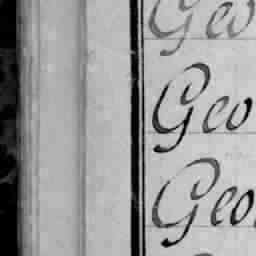 Geo
Geo
Geo.